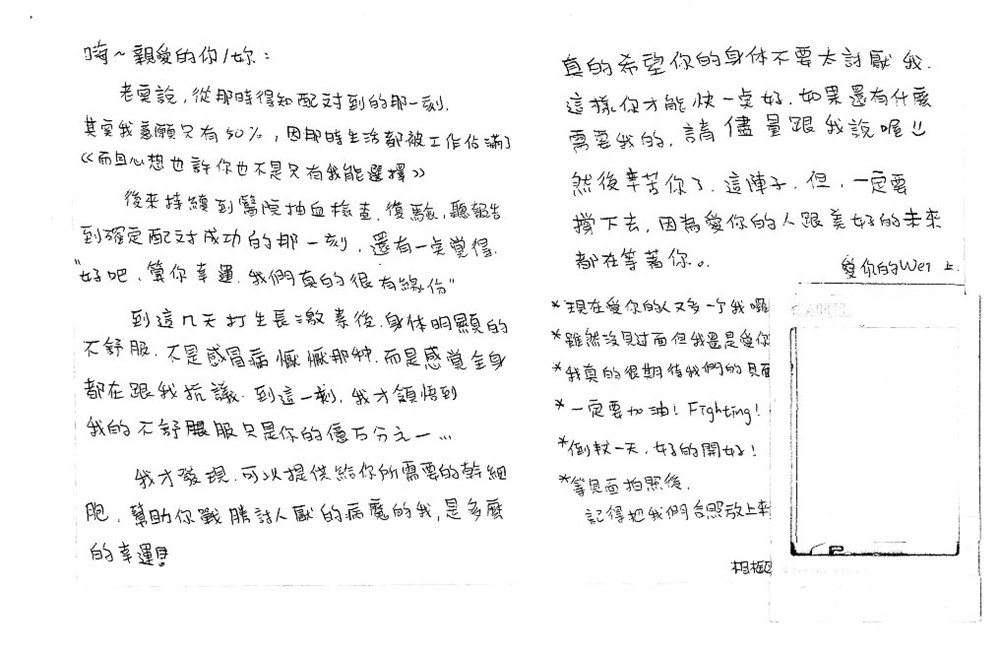 嗨～親愛的你/妳：
老實說，從那時得知配對到的那一刻.
其實我意願只有50%，因那時生活都被工作佔滿了
《而且心想也許你也不是只有我能選擇》
後來持續到醫院抽血檢查、復驗，聽報告
到確定配對成功的那一刻，還有一點覺得.
"好吧，算你幸運.我們真的很有緣份"
到這几天打生長激素後，身体明顯的
不舒服.不是感冒病懨懨那种.而是感覚全身
都在跟我抗議.到這一刻，我才領悟到
我的不舒服只是你的億万分之一…
我才發現，可以提供給你所需要的幹細
胞，幫助你戰勝討人厭的病魔的我，是多麼
的幸運!
真的希望你的身体不要太討厭我.
這樣你才能快一点好.如果還有什麼
需要我的，請儘量跟我說喔!!
然後辛苦你了.這陣子.但，一定要
撐下去，因為愛你的人跟美好的未來
都在等著你。
愛你的Wei 上.
*現在愛你的人又多一个我囉
*雖然沒見过面但我還是愛你
*我真的很期待我們的見面
*一定要加油! Fighting!
*倒數一天，好的開始!
*等見面拍照後，
記得把我們合照放上來
相框